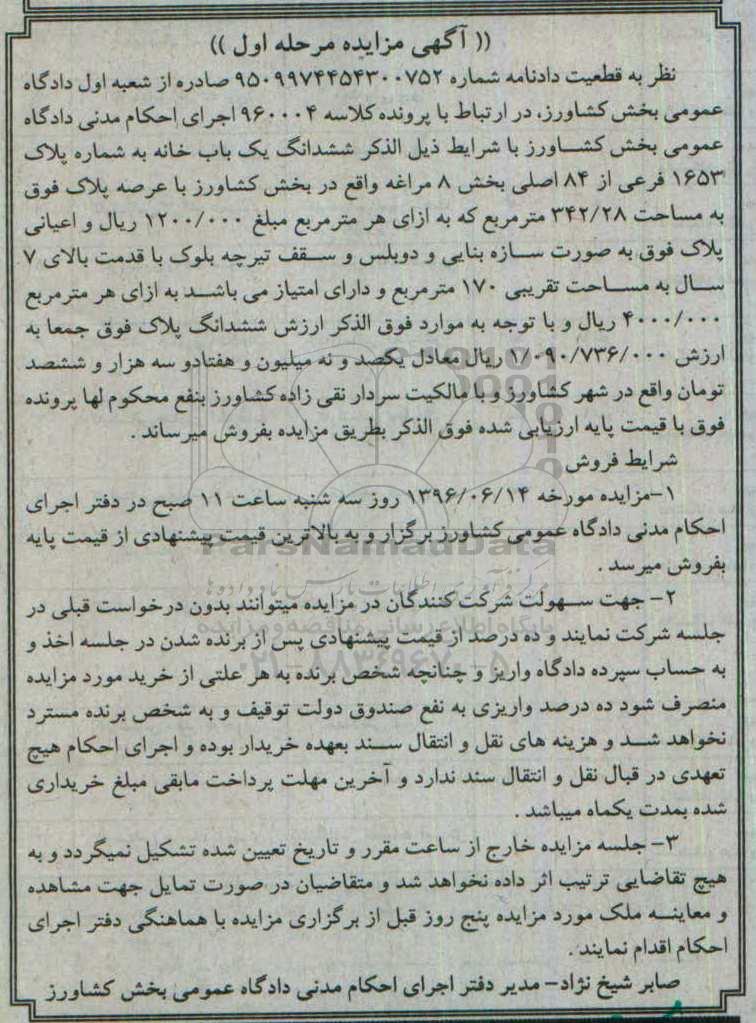 (( آگهی مزایده مرحله اول ))
نظر به قطعیت دادنامه شماره ۹۵۰۹۹۷۴۴۵۴۳۰۰۷۵۲ صادره از شعبه اول دادگاه
عمومی بخش کشاورز، در ارتباط با پرونده کلاسه ۹۶۰۰۰۴ اجرای احکام مدنی دادگاه
عمومی بخش کشاورز با شرایط ذیل الذکر ششدانگ یک باب خانه به شماره پلاک
۱۶۵۳ فرعی از ۸۴ اصلی بخش ۸ مراغه واقع در بخش کشاورز با عرصه پلاک فوق
به مساحت ۳۴۲/۲۸ مترمربع که به ازای هر مترمربع مبلغ ۱۲۰۰/۰۰۰ ریال و اعیانی
پلاک فوق به صورت سازه بنایی و دوبلس و سقف تیرچه بلوک با قدمت بالای ۷
سال به مساحت تقریبی ۱۷۰ مترمربع و دارای امتیاز می باشد به ازای هر مترمربع
۴۰۰۰/۰۰۰ ریال و با توجه به موارد فوق الذکر ارزش ششدانگ پلاک فوق جمعا به
ارزش ۱/۰۹۰/۷۳۶/۰۰۰ ریال معادل یکصد و نه میلیون و هفتادو سه هزار و ششصد
تومان واقع در شهر کشاورز و با مالکیت سردار نقی زاده کشاورز بنفع محکوم لها پرونده
فوق با قیمت پایه ارزیابی شده فوق الذکر بطریق مزایده بفروش میرساند .
شرایط فروش
۱-مزایده مورخه ۱۳۹۶/۰۶/۱۴ روز سه شنبه ساعت ۱۱ صبح در دفتر اجرای
احکام مدنی دادگاه عمومی کشاورز برگزار و به بالاترین قیمت پیشنهادی از قیمت پایه
بفروش میرسد .
۲- جهت سهولت شرکت کنندگان در مزایده میتوانند بدون درخواست قبلی در
جلسه شرکت نمایند و ده درصد از قیمت پیشنهادی پس از برنده شدن در جلسه اخذ و
به حساب سپرده دادگاه واریز و چنانچه شخص برنده به هر علتی از خرید مورد مزایده
منصرف شود ده درصد واریزی به نفع صندوق دولت توقیف و به شخص برنده مسترد
نخواهد شد و هزینه های نقل و انتقال سند بعهده خریدار بوده و اجرای احکام هیچ
تعهدی در قبال نقل و انتقال سند ندارد و آخرین مهلت پرداخت مابقی مبلغ خریداری
شده بمدت یکماه میباشد .
۳- جلسه مزایده خارج از ساعت مقرر و تاریخ تعیین شده تشکیل نمیگردد و به
هیچ تقاضایی ترتیب اثر داده نخواهد شد و متقاضیان در صورت تمایل جهت مشاهده
و معاینه ملک مورد مزایده پنج روز قبل از برگزاری مزایده با هماهنگی دفتر اجرای
احکام اقدام نمایند .
صابر شیخ نژاد- مدیر دفتر اجرای احکام مدنی دادگاه عمومی بخش کشاورز
ParsNamadData
پایگاه اطلاع رسانی مناقصه و مزایده
۰۲۱-۸۸۳۴۹۶۷۰-۵